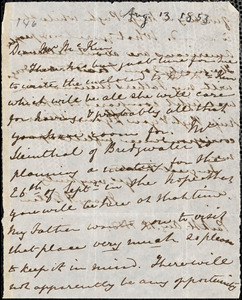 Aug 13. 1853
Dear Mr. McKim
There has been just time for me
to write the enclosed to
which will be all she will care
for having & probably all that
you have room for. Mr
Stemthal of Bridgwater is
planning a meeting for the
26th of Septr in the hope that
you will be here at that time
My Father wants you to visit
that place very much so please
to keep it in mind. There will
not be any opportunity